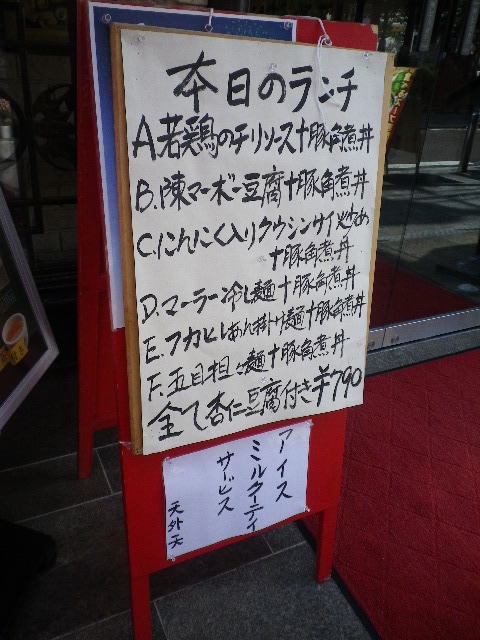 本日のランチ
A.若鶏のチリソース十豚角煮丼
B.陳マーボー豆腐十豚角煮丼
C.にんにく入りクウシンサイ炒め
十豚角煮丼
D.マーラー冷し麺十豚角煮丼
E.フカヒレあん掛け麺十豚角煮丼
F.五目担々麺十豚角煮丼
全て杏仁豆腐付き¥790
アイス
ミルクティ
サービス
天外天